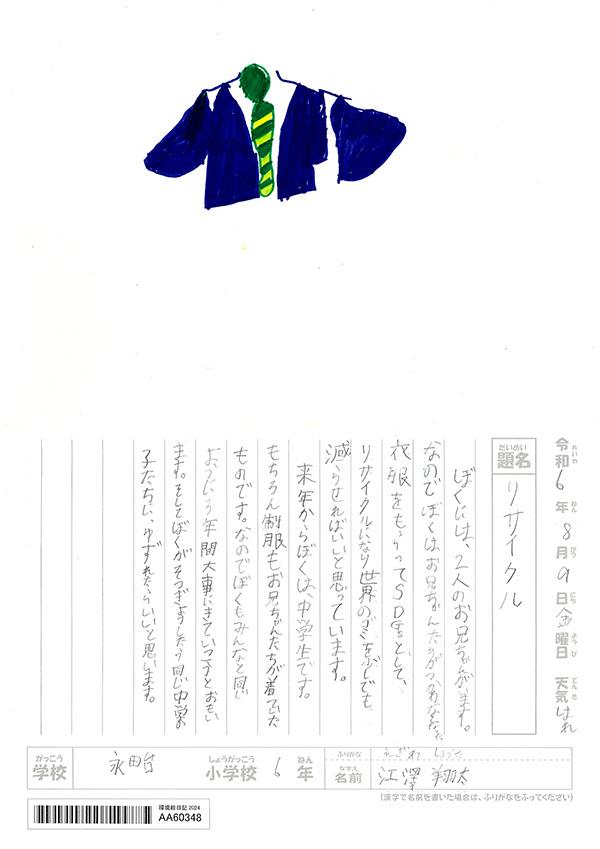 令和6年8月9日金曜日 天気はれ
題名 リサイクル
ぼくには、2人のお兄ちゃんがいます。
なのでぼくはお兄ちゃんたちがつかれなくなった
衣服をもらってSDGsとして、
リサイクルになり世界のゴミをぶしでも
減らせればいいと思っています。
来年からぼくは、中学生です。
もちろん制服もお兄ちゃんたちが着ていた
ものです。なのでぼくもみんなと同じ
ように3年間大事にきていこうとおもい
ます。そしてぼくがそつぎょうしたら同じ中学の
子たちに、ゆずれたらいいと思います。
学校 永田台 小学校 6年
名前 江澤 翔太
(漢字で名前を書いた場合は、ふりがなをふってください)
環境絵日記 2024
AA60348